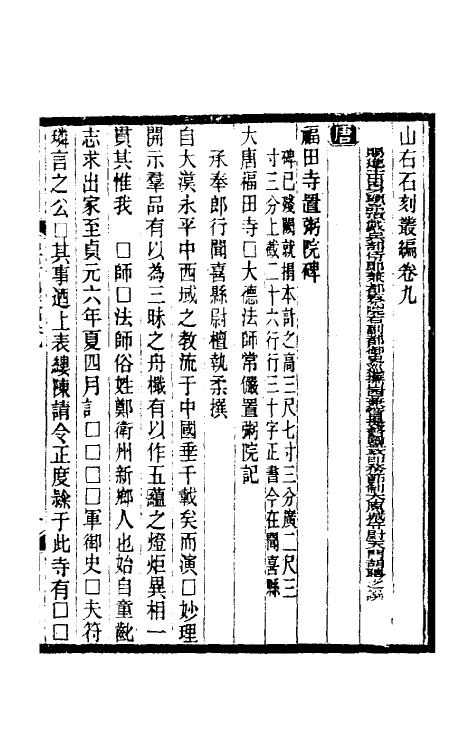 山右石刻叢編卷九
唐
福田寺置粥院碑
碑已殘闕就搨本計之高三尺七寸三分廣二尺三
寸三分上截二十六行行三十字正書今在聞喜縣
大唐福田寺□大德法師常儼置粥院記
承奉郎行聞喜縣尉檀執柔撰
自大漢永平中西域之教流于中國垂千載矣而演□妙理
開示羣品有以為三昧之舟檝有以作五蘊之燈炬異相一
貫其惟我　□師□法師俗姓鄭衛州新鄉人也始自童齔
志求出家至貞元六年夏四月詔□□□□軍御史□夫符
璘言之公□其事遒上表縷陳請令正度隸于此寺有□□